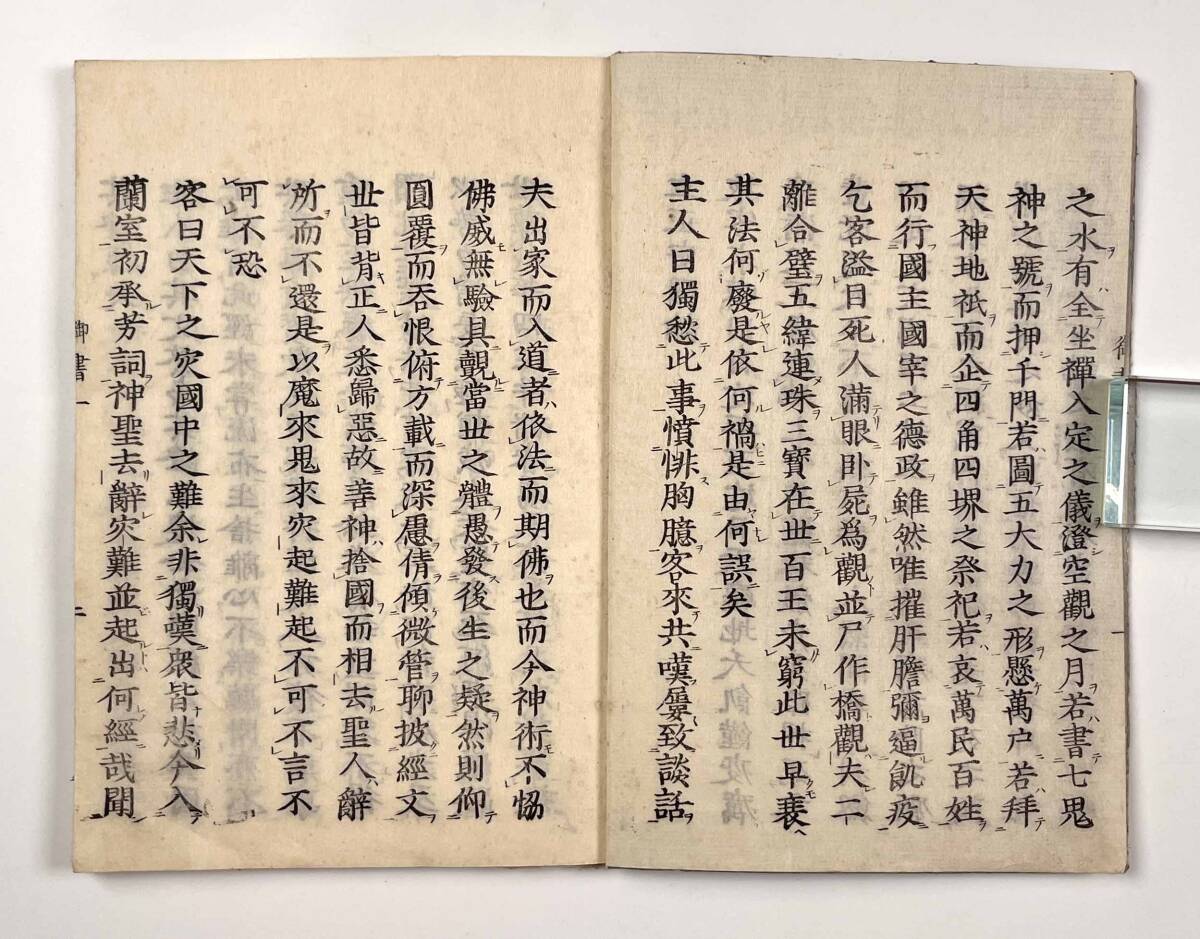 之水有全坐禪入定之儀澄空觀之月若書七鬼
神之號而押千門若圖五大力之形懸萬戸若拜
天神地祇而企四角四堺之祭祀若哀萬民百姓
而行國主國宰之德政雖然唯摧肝膽彌逼飢疫
乞客溢目死人滿眼卧屍爲觀並尸作橋觀夫二
離合璧五緯連珠三寶在世百王未窮此世早衰
其法何廢是依何禍是由何誤矣
主人曰獨愁此事憤悱胸臆客來共嘆屢致談話
夫出家而入道者依法而期佛也而今神術不恊
佛威無驗具覿當世之體愚發後生之疑然則仰
圓覆而吞恨俯方載而深慮倩傾微管聊披經文
世皆背正人悉歸惡故善神捨國而相去聖人辭
所而不還是以魔來鬼來災起難起不可不言不
可不恐
客曰天下之災國中之難余非獨嘆衆皆悲今入
蘭室初承芳詞神聖去辭災難並起出何經哉聞
御書一
二